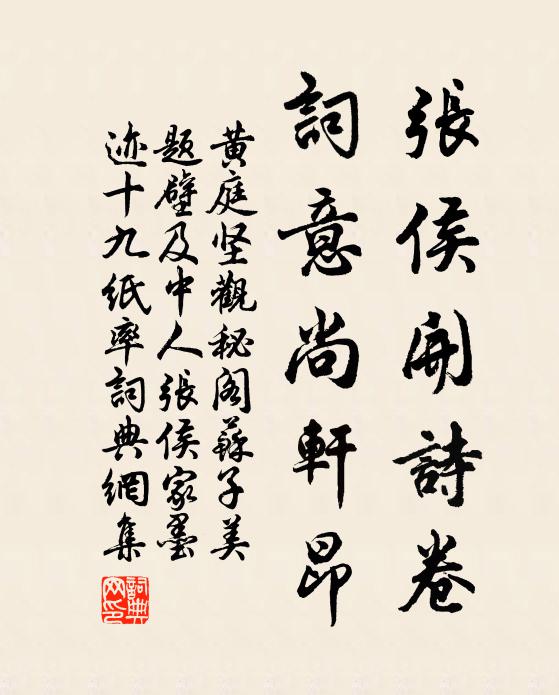 張侯開詩卷
詞意尚軒昂
黃庭坚觀秘阁蘇子美
题壁及中人張侯家墨
迹十九紙率詞典網集
詞典
网印